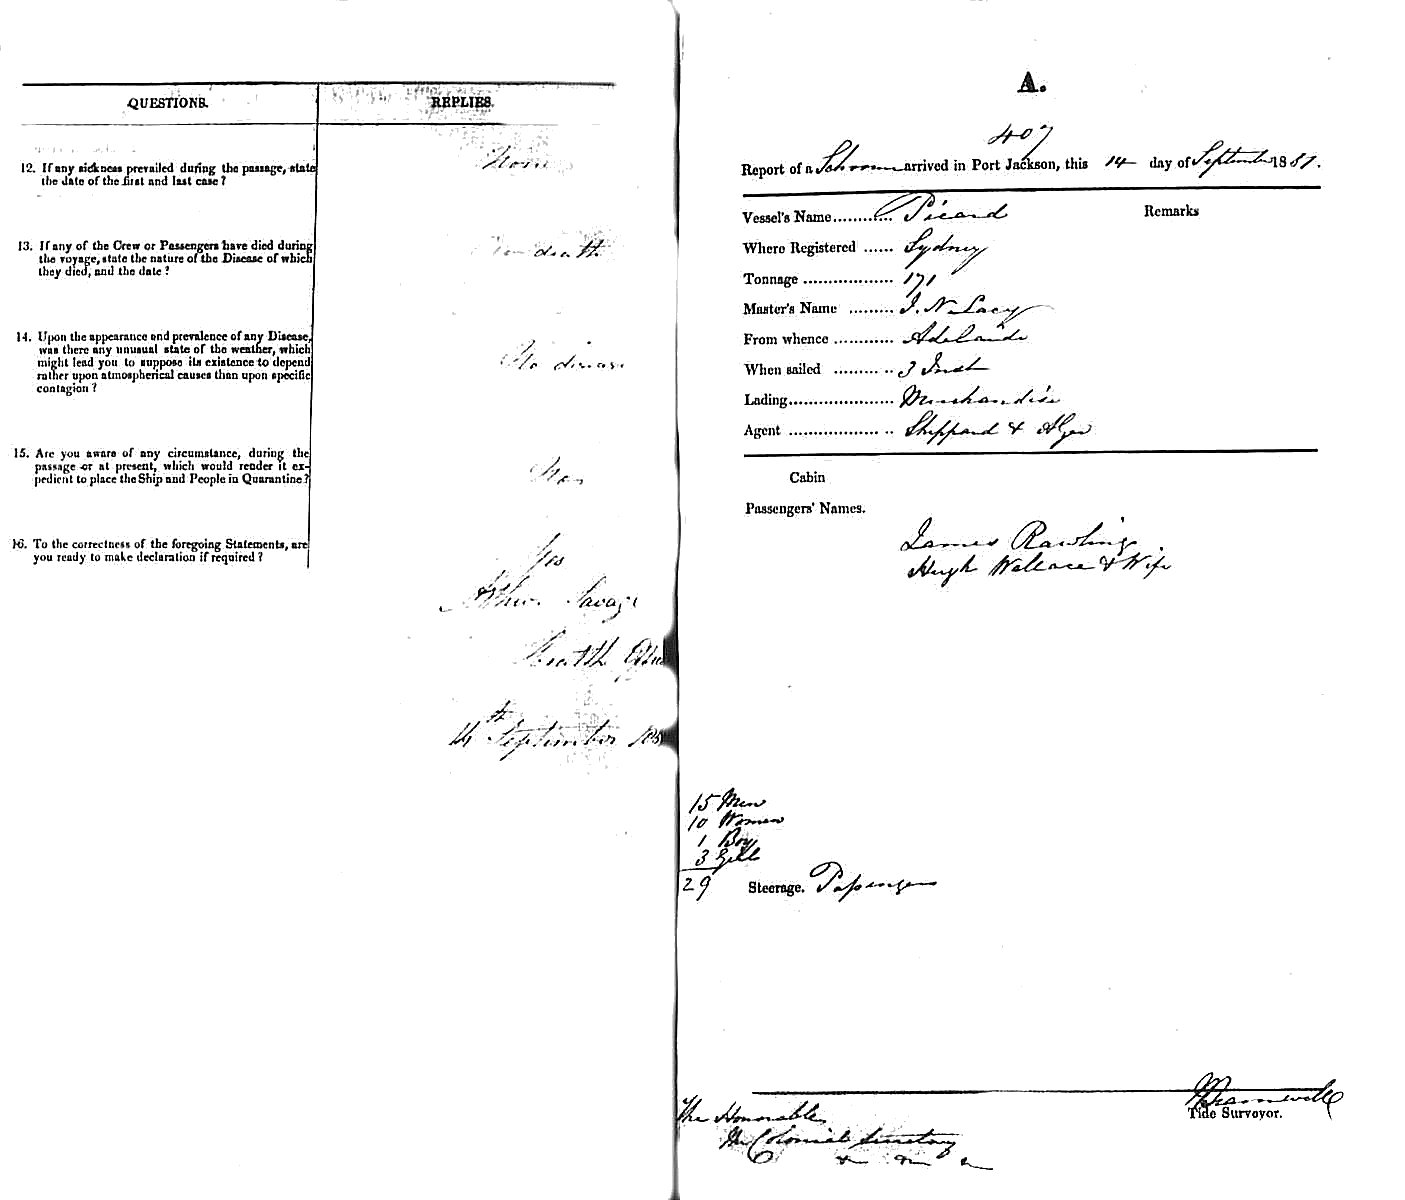 QUESTIONS.
REPLIES.
12. If any sickness prevailed during the passage, state
the date of the first and last case ?
None
13. If any of the Crew or Passengers have died during
the voyage, state the nature of the Disease of which
they died, and the date ?
death
14. Upon the appearance and prevalence of any Disease,
was there any unusual state of the weather, which
might lead you to suppose its existence to depend
rather upon atmospherical causes than upon specific
contagion ?
No disease
15. Are you aware of any circumstance, during the
passage or at present, which would render it ex-
pedient to place the Ship and People in Quarantine ?
16. To the correctness of the foregoing Statements, are
you ready to make declaration if required ?
Yes
Savage
Health
14th September 185
A.
407
Report of a Schooner arrived in Port Jackson, this 14 day of September 1851.
Vessel's Name............ Picard
Remarks
Where Registered ...... Sydney
Tonnage .................. 171
Master's Name ......... J. N. Lacy
From whence ............ Adelaide
When sailed ......... .. 3 Inst
Lading..................... Merchandise
Agent .................. .. Sheppard & Alger
Cabin
Passengers' Names.
James Rawling
Hugh Wallace & Wife
15 Men
10 Women
1 Boy
3 Girls
29 Steerage. Passengers
Tide Surveyor.
The Honorable
The Colonial Secretary